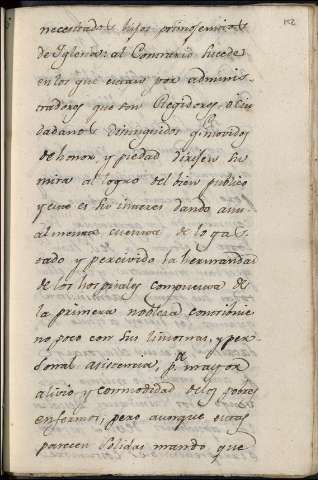 152
necesitados hijos
de Yglesia: al Contrario sucede
en los que están por adminis-
tradores que son Regidores, o Ciu
dadanos distinguidos q.e movidos
de honor, y piedad dirijen su
mira al logro del bien publico
y ese es su interes dando anu
almente cuenta de lo gas
tado y percevido la hermandad
de los hospitales compuesta de
la primera nobleza contribuie
no poco con sus limosnas, y per
sonal asistencia p.a mayor
alivio y commodidad de los pobres
enfermos; pero aunque estas
parecen solidas mando que